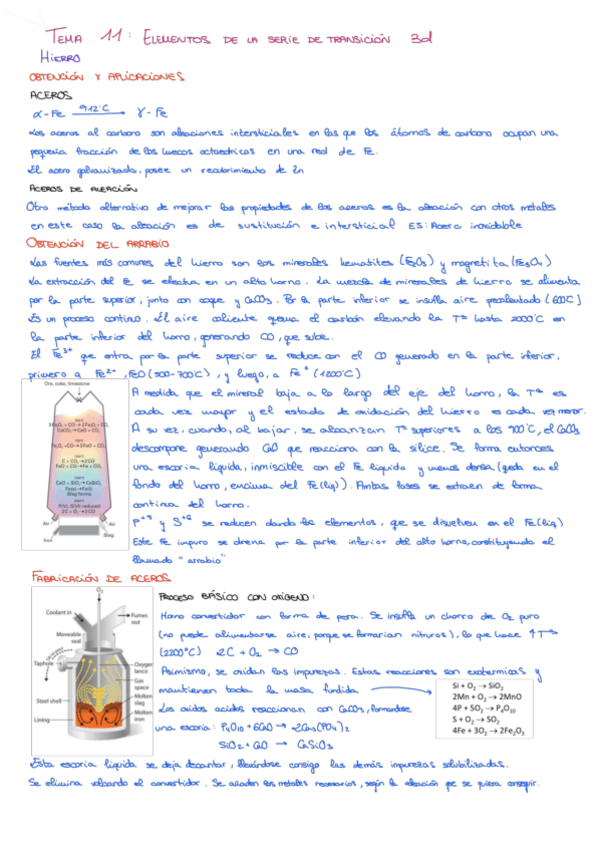 TEMA 11: ELEMENTOS DE LA SERIE DE TRANSICIÓN 3d
HIERRO
OBTENCIÓN Y APLICACIONES
ACEROS
α-Fe 912°C → γ-Fe
Los aceros al carbono son aleaciones intersticiales en las que los átomos de carbono ocupan una
pequeña fracción de los huecos octaedricos en una red de Fe.
El acero galvanizado, posee un recubrimiento de Zn
ACEROS DE ALEACIÓN
Otro método alternativo de mejorar las propiedades de los aceros es la aleación con otros metales
en este caso la aleación es de sustitución e intersticial ES: Acero inoxidable
OBTENCIÓN DEL ARRABIO
Las fuentes más comunes del hierro son los minerales hematites (Fe2O3) y magnetita (Fe3O4)
La extracción del Fe se efectua en un alto horno. La mezcla de minerales de hierro se alimenta
por la parte superior, junto con coque y CaCO3. Por la parte inferior se insufla aire precalentado (600C)
Es un proceso continuo. El aire caliente quema el carbón elevando la Tª hasta 2000°C en
la parte inferior del horno, generando CO, que sube.
El Fe3+ que entra por la parte superior se reduce con el CO generado en la parte inferior,
primero a Fe2+, FeO (500-700°C), y luego, a Fe° (1200°C)
Ore, coke, limestone
Air
Air
Slag
Iron
A medida que el mineral baja a lo largo del eje del horno, la Tª es
cada vez mayor y el estado de oxidación del hierro es cada vez menor.
A su vez, cuando, al bajar, se alcanzan Tª superiores a los 900°C, el CaCO3
descompone generando CaO que reacciona con la sílice. Se forma entonces
una escoria líquida, inmiscible con el Fe líquido y menos densa (queda en el
fondo del horno, encima del Fe(liq)). Ambas fases se extraen de forma
continua del horno.
P+5 y S+6 se reducen dando los elementos, que se disuelven en el Fe(liq)
Este Fe impuro se drena por la parte inferior del alto horno, constituyendo el
llamado "arrabio"
FABRICACIÓN DE ACEROS
PROCESO BÁSICO CON OXÍGENO:
O2
Coolant in
Fumes out
Moveable seal
Taphole
Oxygen lance
Gas space
Steel shell
Molten slag
Lining
Molten iron
Horno convertidor con forma de pera. Se insufla un chorro de O2 puro
(no puede alimentarse aire, porque se formarían nitruros), lo que hace ↑Tª
(2200°C) 2C + O2 → CO
Asimismo, se oxidan las impurezas. Estas reacciones son exotermicas y
mantienen toda la masa fundida
Si + O2 → SiO2
2Mn + O2 → 2MnO
4P + 5O2 → P4O10
S + O2 → SO2
4Fe + 3O2 → 2Fe2O3
Los oxidos acidos reaccionan con CaCO3, formandose
una escoria: P4O10 + 6CaO → 2Ca3(PO4)2
SiO2 + CaO → CaSiO3
Esta escoria líquida se deja decantar, llevándose consigo las demás impurezas solubilizadas.
Se elimina volcando el convertidor. Se añaden los metales necesarios, según la aleación que se quiera conseguir.